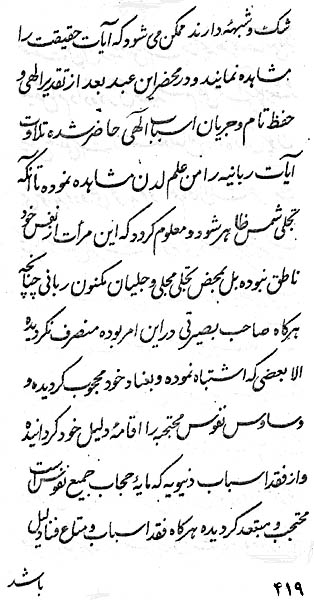 شک و شبهه دارند ممکن می شود که آیات حقیقت را
مشاهده نمایند و در محضر این عبد بعد از تقدیر الهی و
حفظ تام و جریان اسباب الهی حاضر شده تلاوت
آیات ربانیه را من علم لدن مشاهده نموده تا آنکه
تجلی شمس ظاهر شود و معلوم گردد که این مرأت از نفس خود
ناطق نبوده بل بمحض تجلی مجلی و جلیان مکنون ربانی چنانچه
هرکاه صاحب بصیرتی در این امر بوده منصرف نکردیده
الا بعضی که اشتباه نموده و بعناد خود محجوب کردیده و
وساوس نفوس محتجبه را اقامه دلیل خود کردانیده
و از فقد اسباب دنیویه که مایه حجاب جمیع نفوس است
محتجب و مبتعد کردیده هرکاه فقد اسباب و متاع فنا دلیل
باشد
۴۱۹